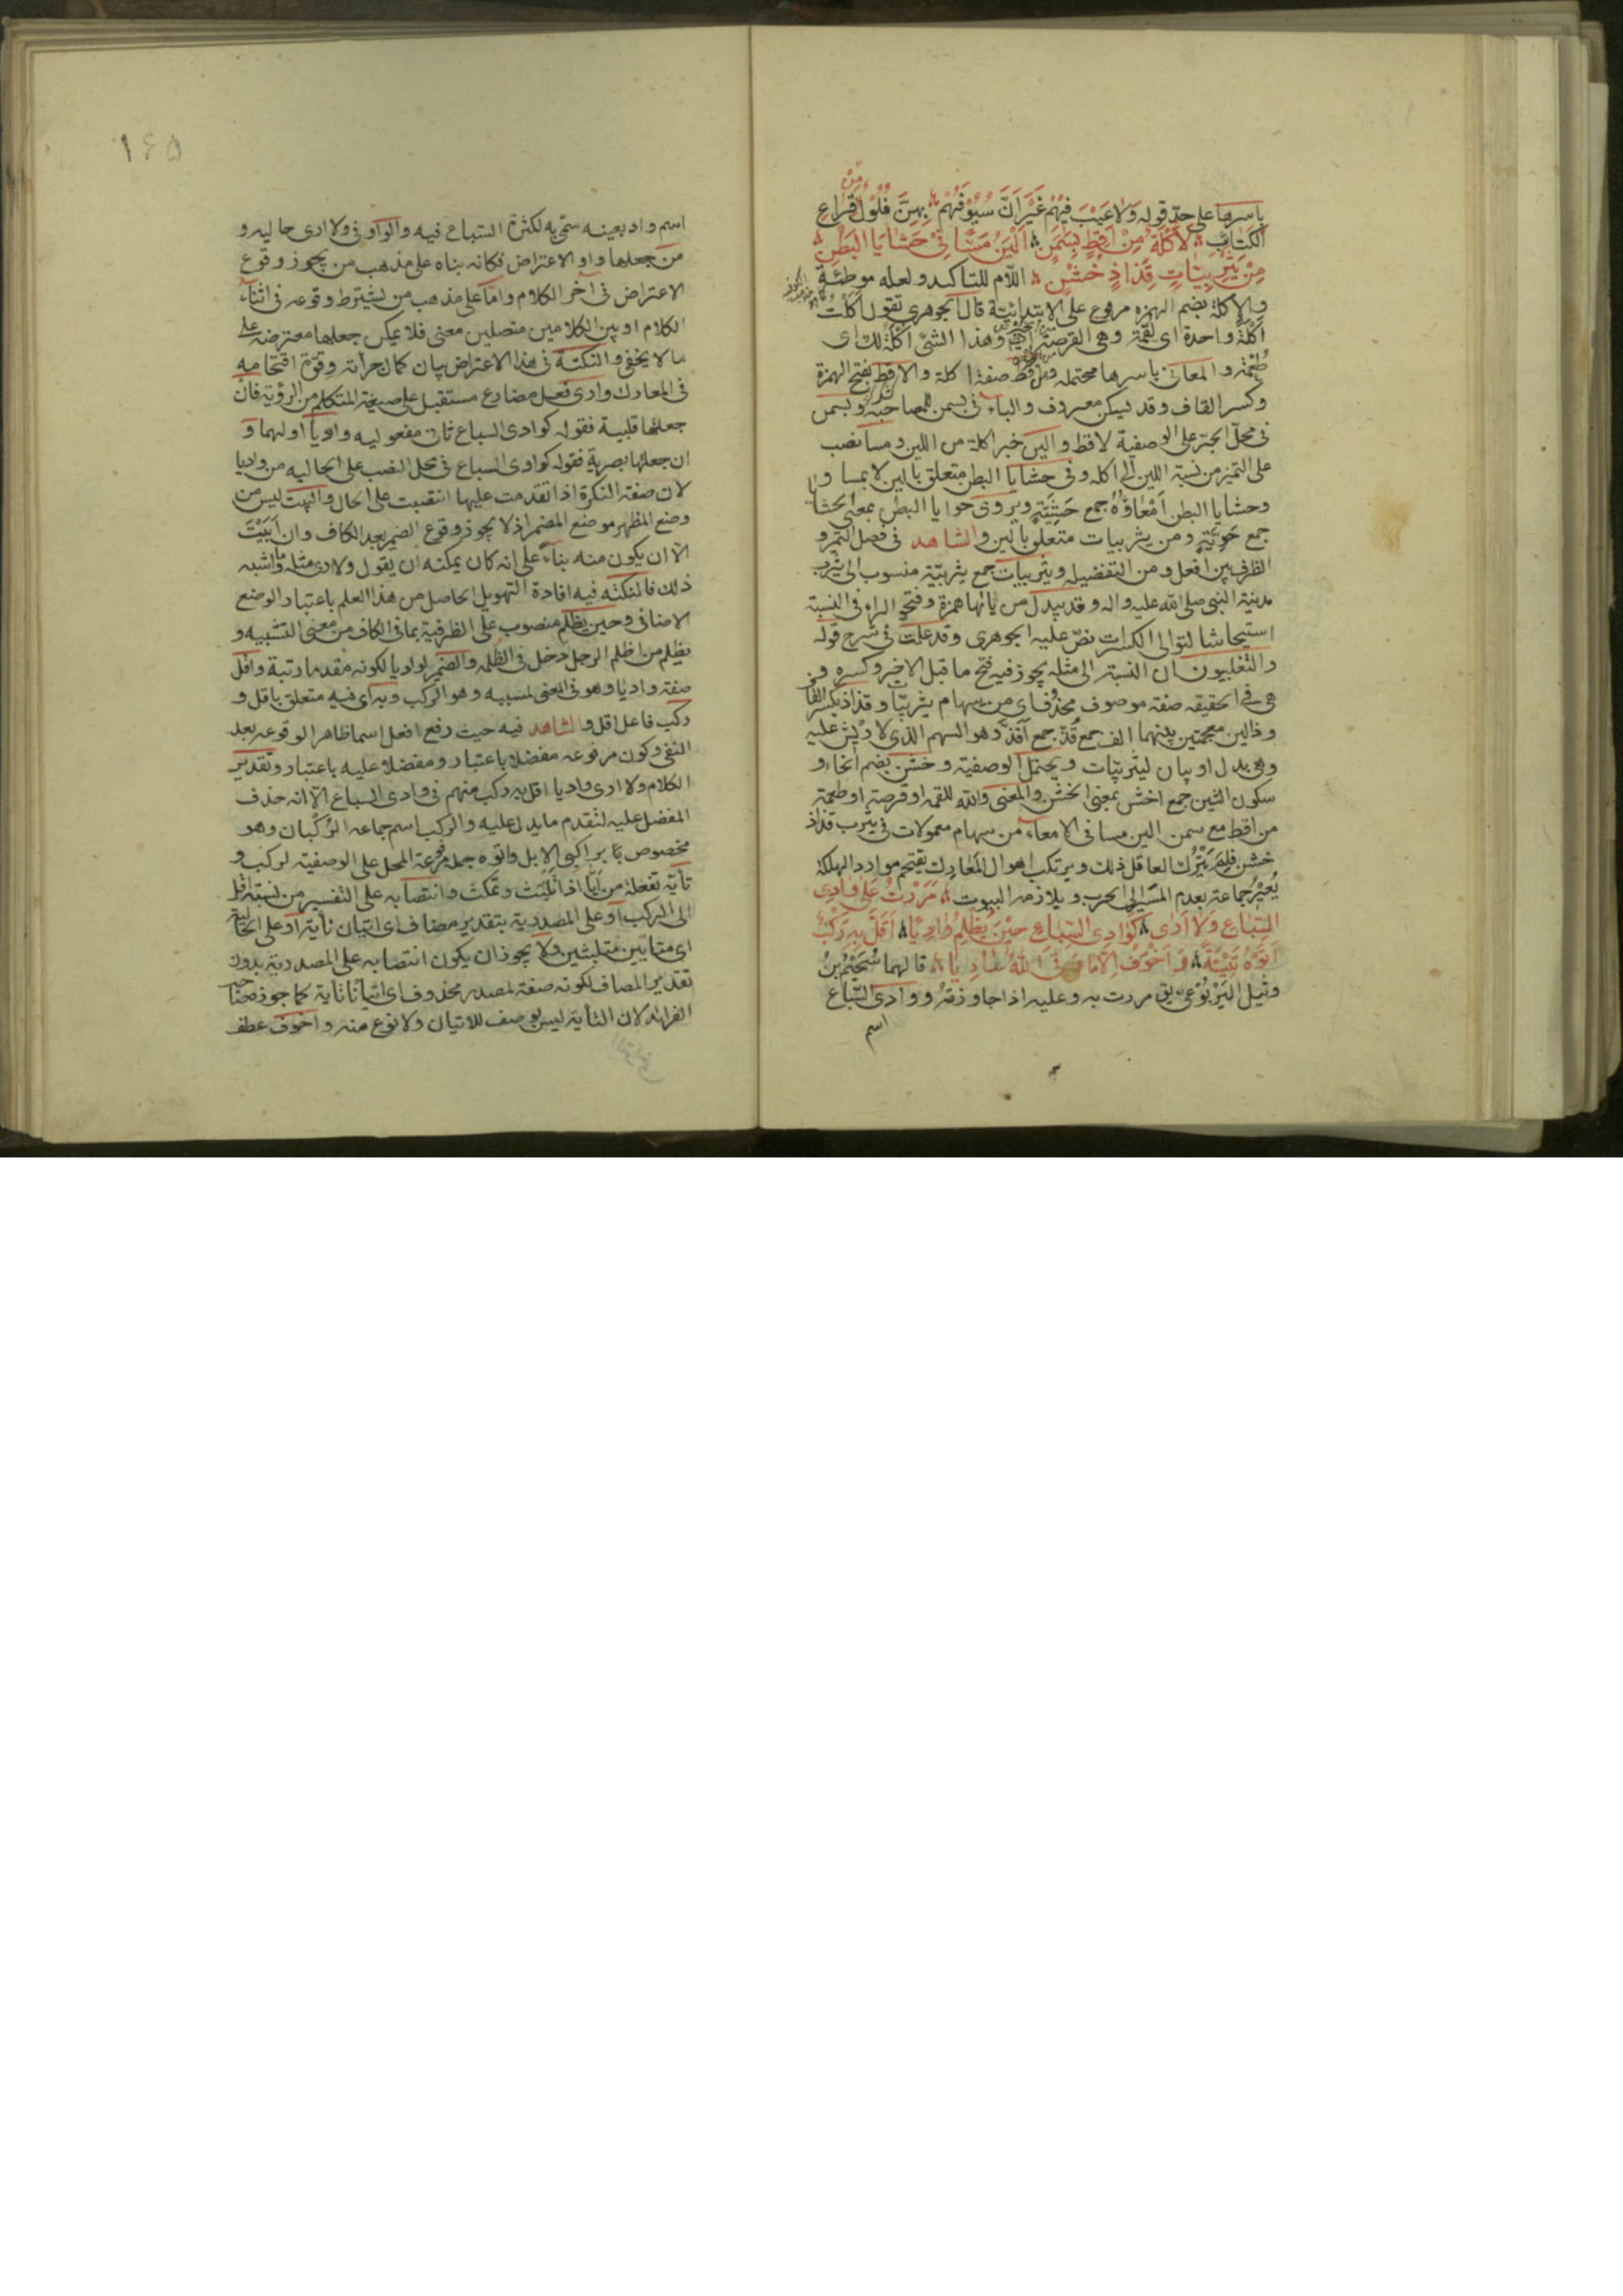 باسرها على حدّ قوله وَلا عَيْبَ فيهُمْ غَيْرَ اَنَّ سُيُوْفَهُمْ بِهِنَّ فُلُوْلٌ مِنْ قِراعِ
الكَتائِبِ لَاُكْلَةٌ مِنْ اَقِطٍ بِسَمْنٍ اَلْيَنُ مَسًّا فِيْ حَشايَا البَطْنِ
مِنْ يَثْرِبِيّاتٍ قِذاذٍ خُشْنِ اللّام للتاكيد ولعله موطئة
والاكلة بضم الهمزه مرفوع على الابتدائيّة قال الجوهرى تقول اَكَلْتُ
اُكْلَةً واحدة اى لُقْمَةً وهى القرصة ايضا وهذا الشئ اُكْلَةٌ لك اى
طُعْمَة والمعانى باسرها محتمله ومن اقط صفة اكلة والاقط بفتح الهمزة
وكسر القاف وقد يسكن معروف والباء فى بسمن للمصاحبة وبسمن
فى محلّ الجرّ على الوصفية لاقط والين خبر اكلة من اللين ومسا نصب
على التميز من نسبة اللين الى اكله وفى حشايا البطن متعلق بالين لا بمسا و
وحشايا البطن اَمْعاؤُهُ جمع حَشِيَّةٍ ويروى حوايا البطن بمعنى الحشايا
جمع حَوِيَّةٍ ومن يثربيات متعلق بالين والشاهد فى فصل التمر و
الظرف بين افعل ومن التفضيليه ويثربيات جمع يثربيّة منسوب الى يثرب
مدينة النبى صلى الله عليه واله وقد يبدل من يائها همزة وفتح الراء فى النسبة
استيحاشا لتوالى الكسرات نصّ عليه الجوهرى وقد علمت فى شرح قوله
والتغلبيون ان النسبة الى مثله يجوز فيه فتح ما قبل الاخر وكسره و
هى فى الحقيقه صفة موصوف محذوف اى من سهام يثربيّات وقذاذ بكسر القاف
وذالين معجمتين بينهما الف جمع قُذّ جمع اَقَذّ وهو السهم الذى لا ريش عليه
وهى بدل او بيان ليثربيّات ويحتمل الوصفية وخشن بضم الخاء و
سكون الشين جمع اخشن بمعنى الخشن والمعنى والله للقمة او قرصة او طعمة
من اقط مع سمن الين مسا فى الامعاء من سهام معمولات فى يثرب قذاذ
خشن فَلِمَ يَتْرُك العاقل ذلك ويرتكب اهوال المعارك يقتحم موارد الهلكة
يُعَيِّرُ جماعة بعدم المسير الى الحرب وبلازمة البيوت مَرَرْتُ عَلى وادِى
السِّباعِ وَلا اَرى كَوادِى السِّباعِ حيْنَ يُظْلِمُ وادِيًا اَقَلَّ بِهِ رَكْبٌ
اَتَوْهُ تَئِيَّةً وَ اَخْوَفَ اِلّا ما وَقَى اللهُ سارِيًا قالهما سُحَيْمُ بْنُ
وثيل اليَرْبُوْعى يق مررت به وعليه اذا جاوزته ووادى السّباع
اسم
١۶۵
اسم واد بعينه سمّى به لكثرة السّباع فيه والواو فى ولا ارى حاليه و
من جعلها واو الاعتراض فكانه بناه على مذهب من يجوز وقوع
الاعتراض فى آخر الكلام وامّا على مذهب من يشترط وقوعه فى اثناء
الكلام او بين الكلامين متصلين معنى فلا يمكن جعلها معترضة على
ما لا يخفى والنكتة فى هذا الاعتراض بيان كمال جرأته وقوّة اقتحامه
فى المعارك وارى فعل مضارع مستقبل على صيغة المتكلم من الرؤية فان
جعلتها قلبية فقوله كوادى السباع ثان مفعوليه وواديا اولهما و
ان جعلتها بصرية فقوله كوادى السباع فى محل النصب على الحاليه من واديا
لان صفة النكرة اذا تقدمت عليها انتصبت على الحال والبيت ليس من
وضع المظهر موضع المضمر اذ لا يجوز وقوع الضمير بعد الكاف وان اَبَيْتَ
الّا ان يكون منه بناءً على انه كان يمكنه ان يقول ولا ارى مثله وما اشبه
ذلك فالنكته فيه افادة التهويل الحاصل من هذا العلم باعتبار الوضع
الاضافى وحين يظلم منصوب على الظرفية بما فى الكاف من معنى التشبيه و
يظلم من اظلم الرجل دخل فى الظلمه والضمير لواديا لكونه مقدما رتبة واقل
صفة واديا وهو فى المعنى لمسببه وهو الركب وبه اى فيه متعلق باقل و
ركب فاعل اقل والشاهد فيه حيث رفع افعل اسما ظاهرا لوقوعه بعد
النفى وكون مرفوعه مفضلا باعتبار ومفضلا عليه باعتبار وتقدير
الكلام ولا ارى واديا اقل به ركب منهم فى وادى السباع الّا انه حذف
المفضل عليه لتقدم ما يدل عليه والركب اسم جماعه الرُكْبان وهو
مخصوص بما براكبى الابل واتوه جملة مرفوعة المحل على الوصفية لركب و
تأية تفعلة من اَيّا اذا تلبّث وتمكث وانتصابه على التفسير من نسبة اقل
الى الركب او على المصدرية بتقدير مضاف اى اتيان تأية او على الحالية
اى متايين متلبثين ولا يجوز ان يكون انتصابه على المصدرية بدون
تقدير المضاف لكونه صفة لمصدر محذوف اى اتيانا تاية كما جوزه صاحب
الفرائد لان التأية ليس بوصف للاتيان ولا نوع منه واخوف عطف